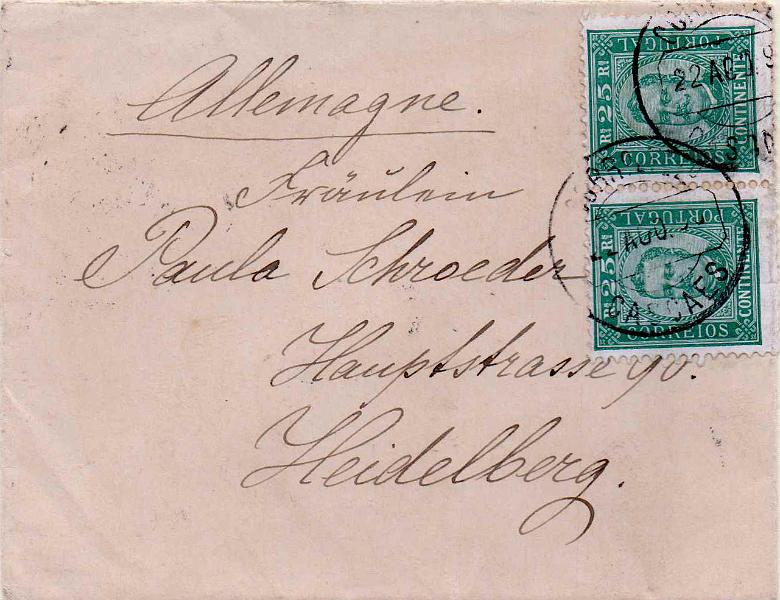 Allemagne.
Fräulein
Paula Schroeder
Hauptstrasse 90.
Heidelberg.
PORTUGAL
25 RI
CONTINENTE
CORREIOS
22 AGO
PORTUGAL
25 RI
CONTINENTE
CORREIOS
AGO.
CASCAES